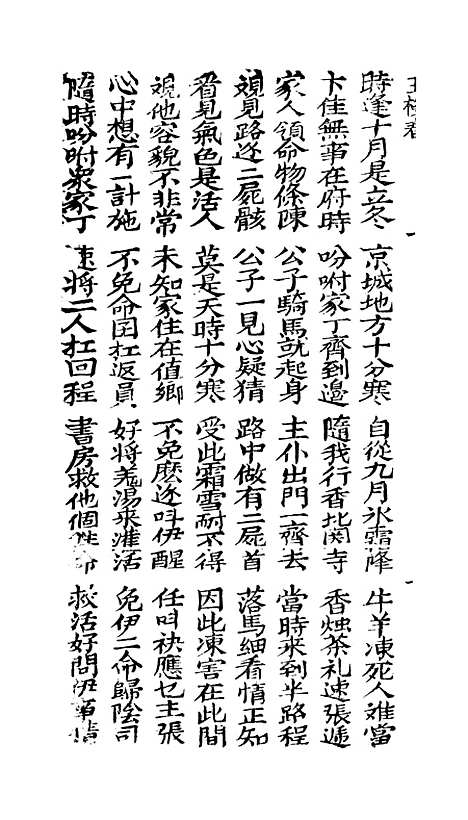 時逢十月是立冬 京城地方十分寒 自從九月氷霜降 牛羊凍死人难當
卞佳無事在府時 吩咐家丁齊到邊 隨我行香北関寺 香烛茶礼速張遞
家人領命物條陳 公子騎馬就起身 主仆出門一齊去 當時來到半路程
覌見路迯二屍骸 公子一見心疑猜 路中做有二屍首 落馬細看情正知
看見氣色是活人 莫是天時十分寒 受此霜雪耐不得 因此凍害在此間
覌他容貌不非常 未知家住在值鄉 不免麽迯叫伊醒 任叫袂應乜主張
心中想有一計施 不免命囝扛返員 好將羗湯來灌活 免伊二命歸陰司
隨時吩咐衆家丁 速將二人扛回程 書房救他個命 救活好問伊情